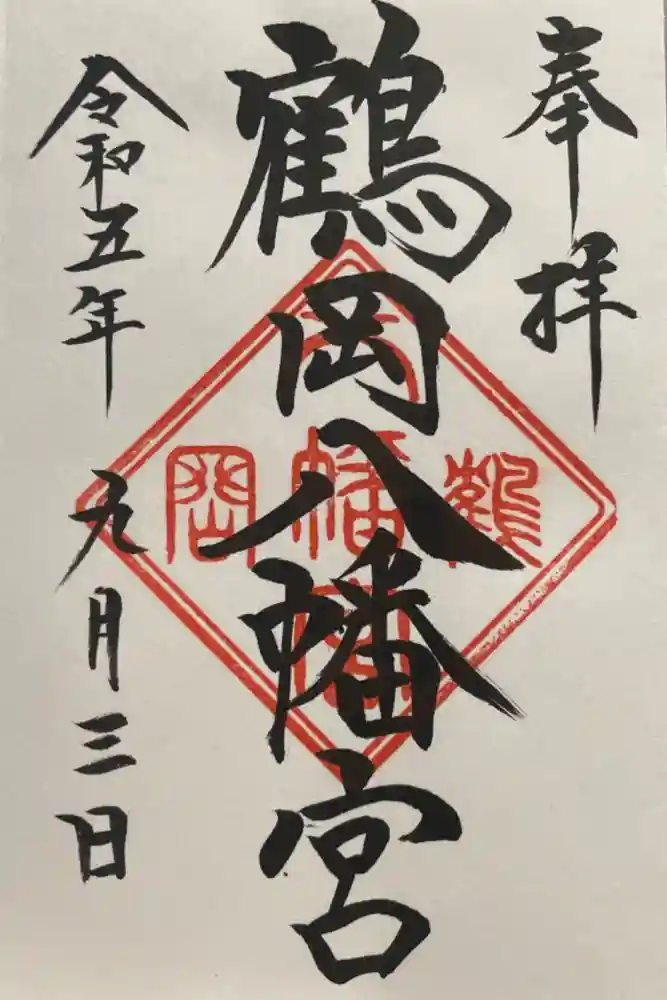 奉拝
鶴岡八幡宮
令和五年九月三日
鶴
八幡宮
岡